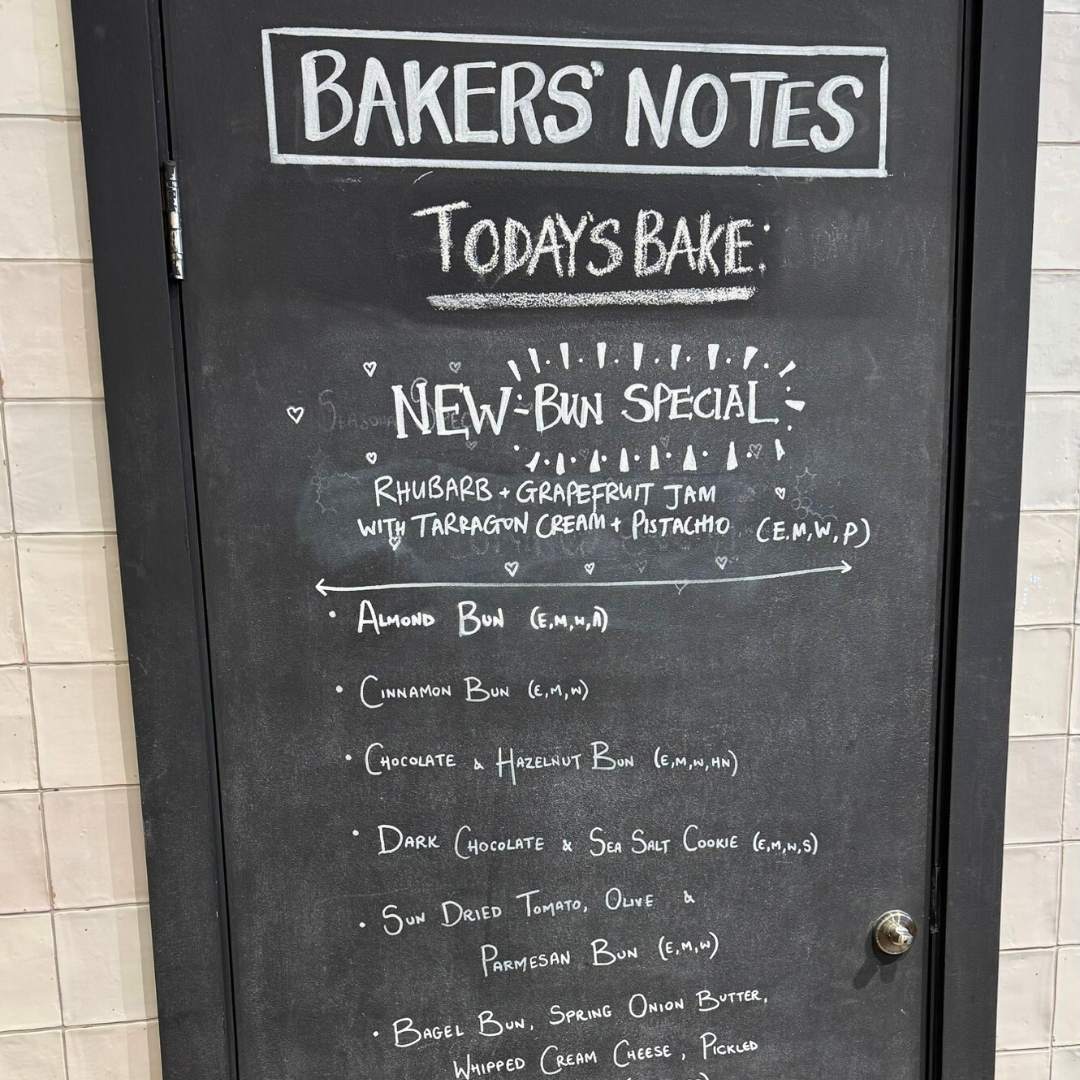 BAKERS' NOTES
TODAY'S BAKE:
NEW BUN SPECIAL
RHUBARB + GRAPEFRUIT JAM
WITH TARRAGON CREAM + PISTACHIO (E.M,W,P)
• ALMOND BUN (E,M,W,A)
• CINNAMON BUN (E,M,W)
• CHOCOLATE & HAZELNUT BUN (E,M,W,HN)
• DARK CHOCOLATE & SEA SALT COOKIE (E,M,W,S)
• SUN DRIED TOMATO, OLIVE &
PARMESAN BUN (E,M,W)
• BAGEL BUN, SPRING ONION BUTTER,
WHIPPED CREAM CHEESE, PICKLED